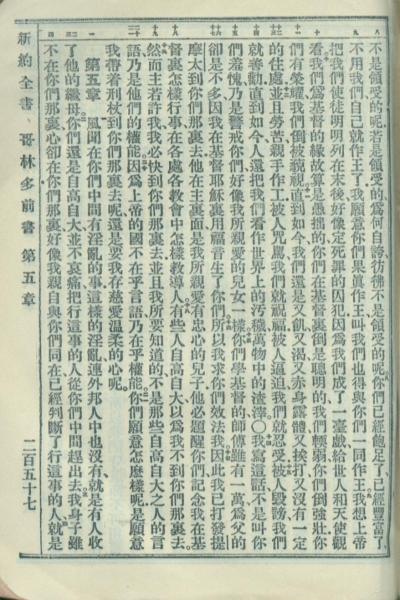 不是領受的呢若是領受的爲何自誇彷彿不是領受的呢你們已經飽足了已經豐富了
不用我們自己就作王了我願意你們果眞作王叫我們也得與你們一同作王我想上帝
把我們使徒明明列在末後好像定死罪的囚犯因爲我們成了一臺戲給世人和天使觀
看我們爲基督的緣故算是愚拙的你們在基督裏倒是聰明的我們輭弱你們倒強壯你
們有榮耀我們倒被藐視直到如今我們還是又飢又渴又赤身露體又挨打又沒有一定
的住處並且勞苦親手作工被人咒罵我們就祝福被人逼迫我們就忍受被人毀謗我們
就善勸直到如今人還把我們看作世界上的污穢萬物中的渣滓〇我寫這話不是叫你
們羞愧乃是警戒你們好像我所親愛的兒女一樣你們學基督的師傅雖有一萬爲父的
卻是不多因我在基督耶穌裏用福音生了你們所以我求你們效法我因此我已打發提
摩太到你們那裏去他在主裏面是我所親愛有忠心的兒子他必題醒你們記念我在基
督裏怎樣行事在各處各教會中怎樣教導人有些人自高自大以爲我不到你們那裏去
然而主若許我我必快到你們那裏去並且我所要知道的不是那些自高自大之人的言
語乃是他們的權能因爲上帝的國不在乎言語乃在乎權能你們願意怎麼樣呢是願意
我帶着刑杖到你們那裏去呢還是要我存慈愛溫柔的心呢
第五章 風聞在你們中間有淫亂的事這樣的淫亂連外邦人中也沒有就是有人收
了他的繼母你們還是自高自大並不哀痛把行這事的人從你們中間趕出去我身子雖
不在你們那裏心卻在你們那裏好像我親自與你們同在已經判斷了行這事的人就是
新約全書 哥林多前書 第五章 二百五十七